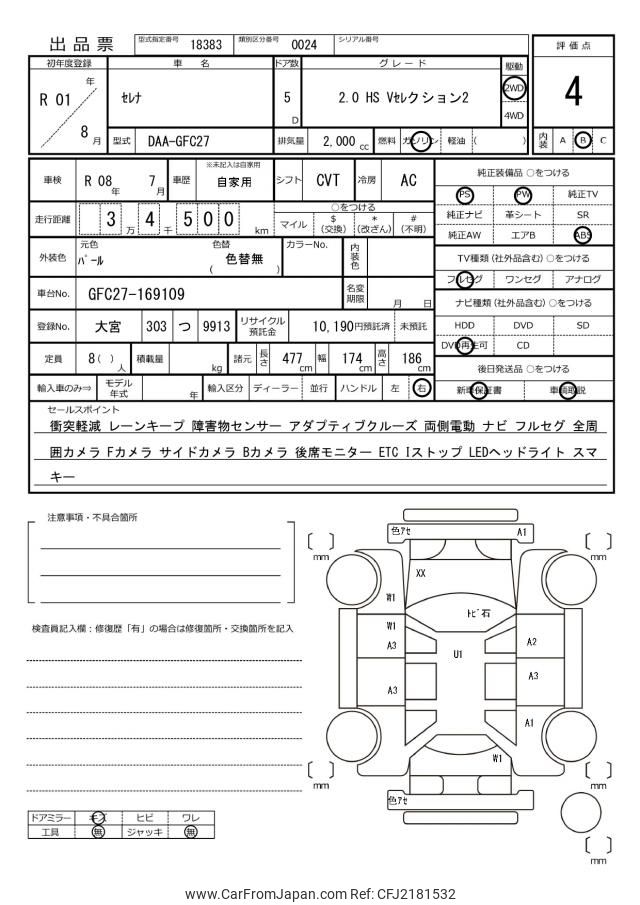 出品票 型式指定番号 18383 類別区分番号 0024 シリアル番号
評価点
4
内装 A B C
初年度登録 車名 ドア数 グレード 駆動
R 01 年 8 月
セレナ
5 D
2.0 HS Vセレクション2
2WD
4WD
型式 DAA-GFC27 排気量 2,000 cc 燃料 ガソリン 軽油 ( )
車検 R 08 年 7 月 車歴 ※未記入は自家用 自家用 シフト CVT 冷房 AC
走行距離 3 4 万 千 5 0 0 km
○をつける
マイル $ (交換) * (改ざん) # (不明)
外装色 元色 パール 色替 ( 色替無 ) カラーNo. 内装色
車台No. GFC27-169109 名変期限 月 日
登録No. 大宮 303 つ 9913 リサイクル預託金 10,190円預託済 未預託
定員 8( ) 人 積載量 kg 諸元 長さ 477 cm 幅 174 cm 高さ 186 cm
輸入車のみ⇒ モデル年式 年 輸入区分 ディーラー ・ 並行 ハンドル 左 右
純正装備品 ○をつける
PS PW 純正TV
純正ナビ 革シート SR
純正AW エアB ABS
TV種類 (社外品含む) ○をつける
フルセグ ワンセグ アナログ
ナビ種類 (社外品含む) ○をつける
HDD DVD SD
DVD再生可 CD
後日発送品 ○をつける
新車保証書 車輌取説
セールスポイント
衝突軽減 レーンキープ 障害物センサー アダプティブクルーズ 両側電動 ナビ フルセグ 全周
囲カメラ Fカメラ サイドカメラ Bカメラ 後席モニター ETC Iストップ LEDヘッドライト スマ
キー
注意事項・不具合箇所
検査員記入欄：修復歴「有」の場合は修復箇所・交換箇所を記入
ドアミラー キズ ヒビ ワレ
工具 無 ジャッキ 無
色アセ A1
mm mm
XX
W1
トビ石
W1
A3
U1
A2
A3
A3
A1
W1
mm mm
色アセ
mm
www.CarFromJapan.com Ref: CFJ2181532